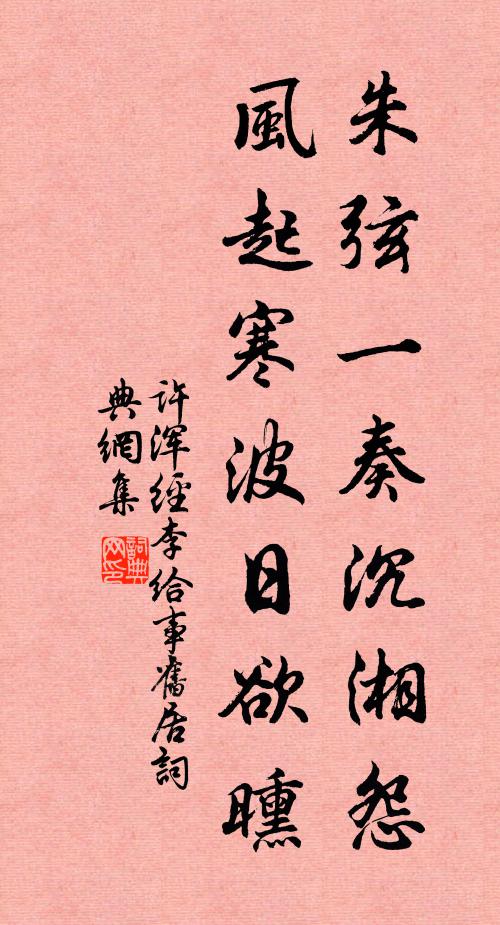 朱弦一奏沉湘怨
風起寒波日欲曛
许浑經李给事舊居詞
典網集
詞典
网印